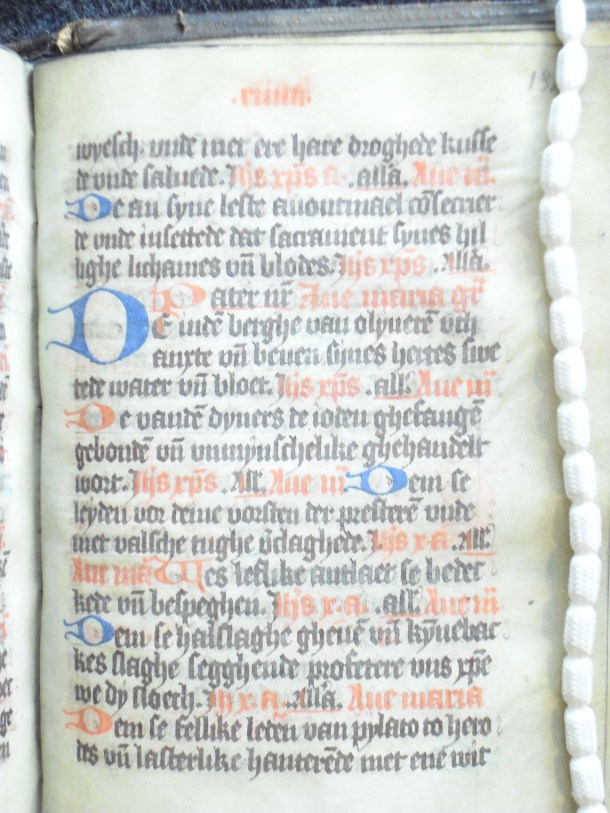 wyesch. vnde met ere hare droghede kusse
de vnde saluede. Ihs xp̄s a. alla. Aue m̄.
De an syne leste auontmael cōsecrier
de vnde insettede dat sacrament synes hil
lighe lichames vn̄ blodes. Ihs xp̄s. Alla.
Pater nr̄ Aue maria gr̄
DE indē berghe van olyuetē vth
anxte vn̄ beuen synes hertes swe
tede water vn̄ bloet. Ihs xp̄s. all. Aue m̄
De vandē dyners de ioden ghefangē
gebondē vn̄ vnmynschelike ghehandelt
wort. Ihs xp̄s. All. Aue m. Dem se
leyden vor deme vorsten der presterē vnde
met valsche tughe v̄claghede. Ihs x. a. All.
Aue mā Wes leflike antlaet se bedec
kede vn̄ bespeghen. Ihs x. a. all. Aue m̄
Dem se halslaghe gheuē vn̄ kȳnebac
kes slaghe segghende profetere vns xp̄e
we dy sloech. Ih x. a. Alla. Aue maria
Dem se fellike leten van pylato to hero
des vn̄ lasterlike hanterēde met ene wit